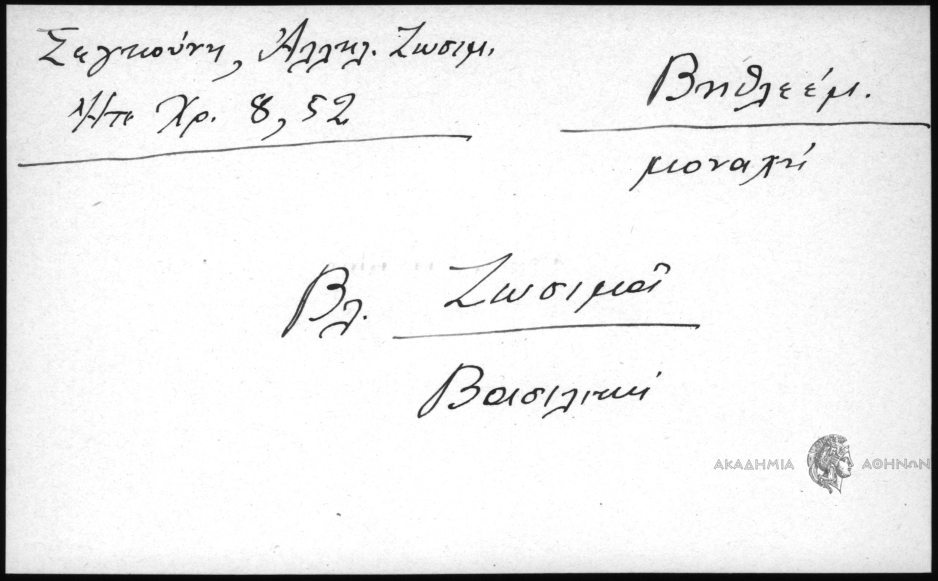 Σαγκούνη, Ἀλληλ. Ζωσιμ.
Ἠπ Χρ. 8, 52
Βηθλεέμ.
μοναχή
Βλ. Ζωσιμᾶ
Βασιλική
ΑΚΑΔΗΜΙΑ ΑΘΗΝΩΝ